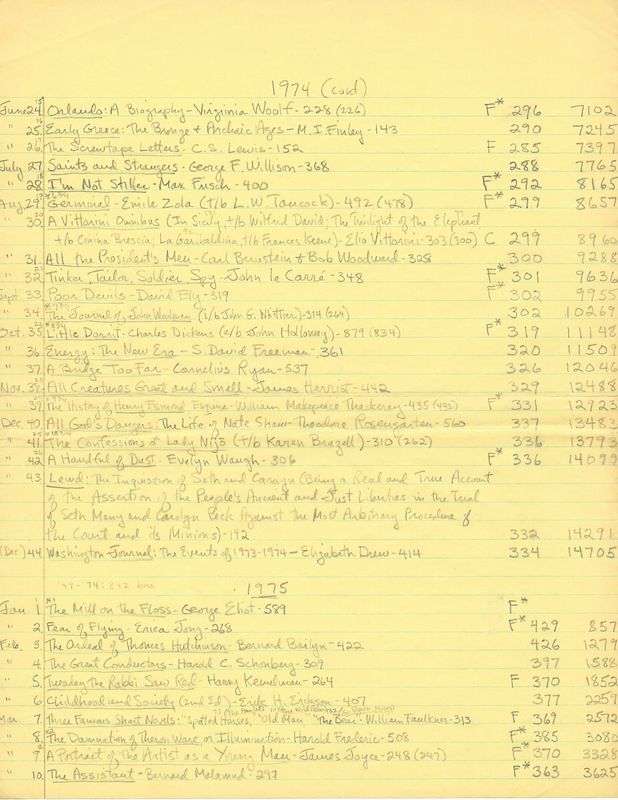 1974 (cont)
June 24. Orlando: A Biography - Virginia Woolf - 228 (226) F* 296 7102
" 25. Early Greece: The Bronze & Archaic Ages - M.I. Finley - 143 290 7245
" 26. The Screwtape Letters - C.S. Lewis - 152 F 285 7397
July 27. Saints and Strangers - George F. Willison - 368 288 7765
" 28. I'm Not Stiller - Max Frisch - 400 F* 292 8165
Aug. 29. Germinal - Emile Zola (t/b L.W. Tancock) - 492 (478) F* 299 8657
" 30. A Vittorini Omnibus (In Sicily, t/b Wilfrid David; The Twilight of the Elephant
t/b Cinina Brescia; La Garibaldina, t/b Frances Keene) - Elio Vittorini - 303 (300) C 299 8960
" 31. All the President's Men - Carl Bernstein & Bob Woodward - 328 300 9288
" 32. Tinker, Tailor, Soldier, Spy - John le Carré - 348 F* 301 9636
Sept. 33. Poor Devils - David Ely - 319 F* 302 9955
" 34. The Journal of John Woolman (i/b John G. Whittier) - 314 (264) 302 10269
Oct. 35. Little Dorrit - Charles Dickens (e/b John Holloway) - 879 (834) F* 319 11148
" 36. Energy: The New Era - S. David Freeman - 361 320 11509
" 37. A Bridge Too Far - Cornelius Ryan - 537 326 12046
Nov. 38. All Creatures Great and Small - James Herriot - 442 329 12488
" 39. The History of Henry Esmond Esquire - William Makepeace Thackeray - 435 (432) F* 331 12923
Dec. 40. All God's Dangers: The Life of Nate Shaw - Theodore Rosengarten - 560 337 13483
" 41. The Confessions of Lady Nijō (t/b Karen Brazell) - 310 (262) 336 13793
" 42. A Handful of Dust - Evelyn Waugh - 306 F* 336 14099
" 43. Lewd: The Inquisition of Seth and Carolyn (Being a Real and True Account
of the Assertion of the People's Ancient and Just Liberties in the Trial
of Seth Many and Carolyn Peck Against the Most Arbitrary Procedure of
the Court and its Minions) - 192 332 14291
(Dec) 44. Washington Journal: The Events of 1973-1974 - Elizabeth Drew - 414 334 14705
1975
Jan. 1. The Mill on the Floss - George Eliot - 589 F*
" 2. Fear of Flying - Erica Jong - 268 F* 429 857
Feb. 3. The Ordeal of Thomas Hutchinson - Bernard Bailyn - 422 426 1279
" 4. The Great Conductors - Harold C. Schonberg - 309 397 1588
" 5. Tuesday the Rabbi Saw Red - Harry Kemelman - 264 F 370 1852
" 6. Childhood and Society (2nd Ed.) - Erik H. Erikson - 407 377 2259
Mar. 7. Three Famous Short Novels: "Spotted Horses," "Old Man," "The Bear" - William Faulkner - 313 F 369 2572
" 8. The Damnation of Theron Ware, or Illumination - Harold Frederic - 508 F* 385 3080
" 9. A Portrait of the Artist as a Young Man - James Joyce - 248 (247) F* 370 3328
" 10. The Assistant - Bernard Malamud - 297 F* 363 3625